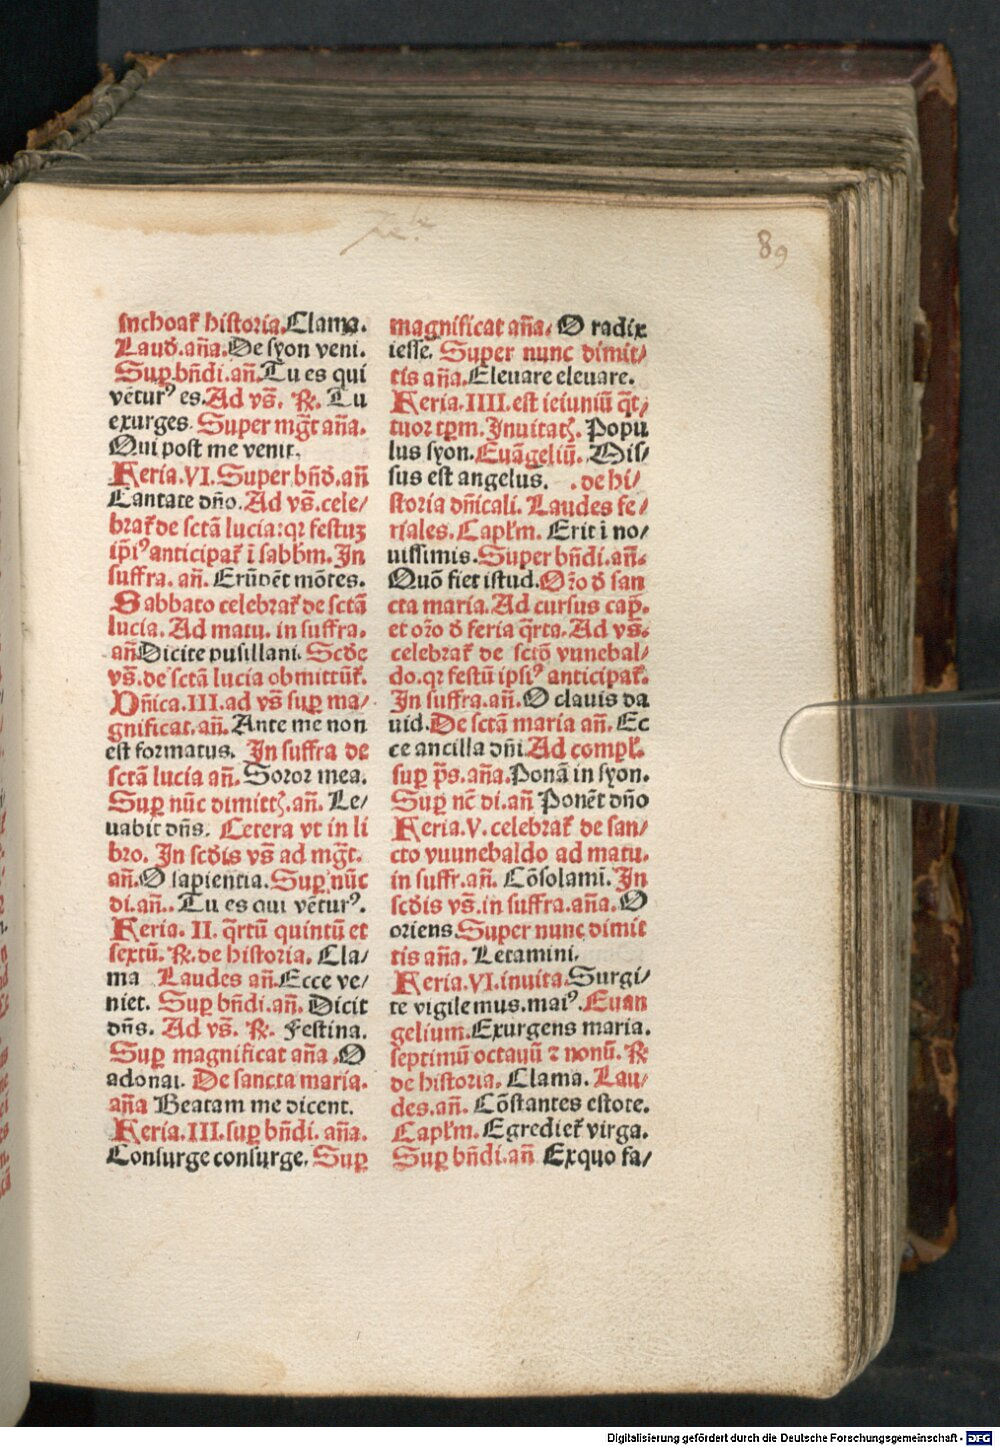 89
inchoat᷑ historia. Clama.
Laud̄.an̄a. De syon veni.
Sup̱ bn̄di.an̄. Tu es qui
vētur⁹ es. Ad vs̄. ℟. Tu
exurges. Super mḡt an̄a.
Qui post me venit.
Feria.VI. Super bn̄d̄.an̄
Cantate dn̄o. Ad vs̄.cele/
brat᷑ de sctā lucia:qꝛ festuꝫ
ip̄i⁹ anticipat᷑ ī sabb̄m. In
suffra. an̄. Erūpēt mōtes.
Sabbato celebrat᷑ de sctā
lucia. Ad matu. in suffra.
an̄ Dicite pusillani. Scd̄e
vs̄.de sctā lucia obmittūt᷑.
Dn̄ica.III.ad vs̄ sup̱ ma/
gnificat.an̄. Ante me non
est formatus. In suffra de
sctā lucia an̄. Soror mea.
Sup̱ nūc dimittꝫ.an̄. Le/
uabit dn̄s. Cetera vt in li
bro. In scd̄is vs̄ ad mḡt.
an̄. O sapientia. Sup̱ nūc
di.an̄.. Tu es qui vētur⁹.
Feria. II. q̄rtū quintū et
sextū. ℟. de historia. Cla/
ma Laudes an̄. Ecce ve/
niet. Sup̱ bn̄di.an̄. Dicit
dn̄s. Ad vs̄. ℟. Festina.
Sup̱ magnificat an̄a. O
adonai. De sancta maria.
an̄a Beatam me dicent.
Feria.III.sup̱ bn̄di. an̄a.
Consurge consurge. Sup̱
magnificat an̄a. O radix
iesse. Super nunc dimit/
tis an̄a. Eleuare eleuare.
Feria.IIII.est ieiuniū q̄t/
tuor tp̄m. Inuitatꝫ. Popu
lus syon. Euāgeliū. Mis/
sus est angelus. . de hi/
storia dn̄icali. Laudes fe/
riales. Capl̄m. Erit ī no/
uissimis. Super bn̄di.an̄.
Quō fiet istud. Oꝛ̄o d̄ san
cta maria. Ad cursus cap̄.
et oꝛ̄o d̄ feria q̄rta. Ad vs̄.
celebrat᷑ de sctō vunebal/
do. qꝛ festū ipsi⁹ anticipat᷑.
In suffra.an̄. O clauis da
uid. De sctā maria an̄. Ec
ce ancilla dn̄i Ad compl̄.
sup̱ p̄s. an̄a. Ponā in syon.
Sup̱ nc̄ di.an̄ Ponēt dn̄o
Feria.V. celebrat᷑ de san/
cto vuunebaldo ad matu.
in suffr.an̄. Cōsolamī. In
scd̄is vs̄.in suffra.an̄a. O
oriens. Super nunc dimit
tis an̄a. Letamini.
Feria.VI.inuita. Surgi/
te vigilemus.mai⁹. Euan
gelium. Exurgens maria.
septimū octauū ⁊ nonū. ℟
de historia. Clama. Lau/
des.an̄. Cōstantes estote.
Capl̄m. Egrediet᷑ virga.
Sup̱ bn̄di.an̄ Ex quo fa/
Digitalisierung gefördert durch die Deutsche Forschungsgemeinschaft - DFG